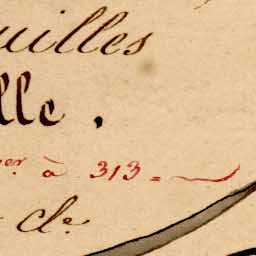 uilles
lle.
er. à 313 =
de